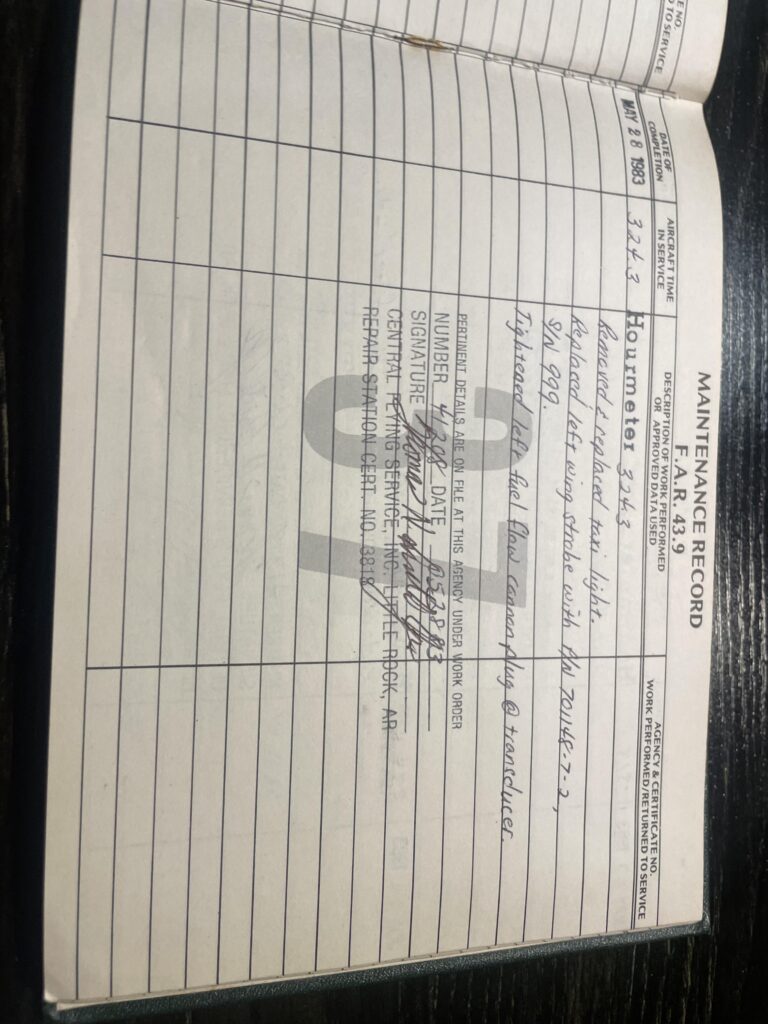 E NO.
D TO SERVICE
MAINTENANCE RECORD
F.A.R. 43.9
DATE OF
COMPLETION
AIRCRAFT TIME
IN SERVICE
DESCRIPTION OF WORK PERFORMED
OR APPROVED DATA USED
AGENCY & CERTIFICATE NO.
WORK PERFORMED/RETURNED TO SERVICE
MAY 28 1983 324.3 Hourmeter 324.3
Removed & replaced taxi light.
Replaced left wing strobe with P/N 701148-7-2,
S/N 999.
Tightened left fuel flow cannon plug @ transducer.
PERTINENT DETAILS ARE ON FILE AT THIS AGENCY UNDER WORK ORDER
NUMBER 4308 DATE
SIGNATURE Thomas
CENTRAL FLYING SERVICE, INC. LITTLE ROCK, AR
REPAIR STATION CERT. NO. 3818